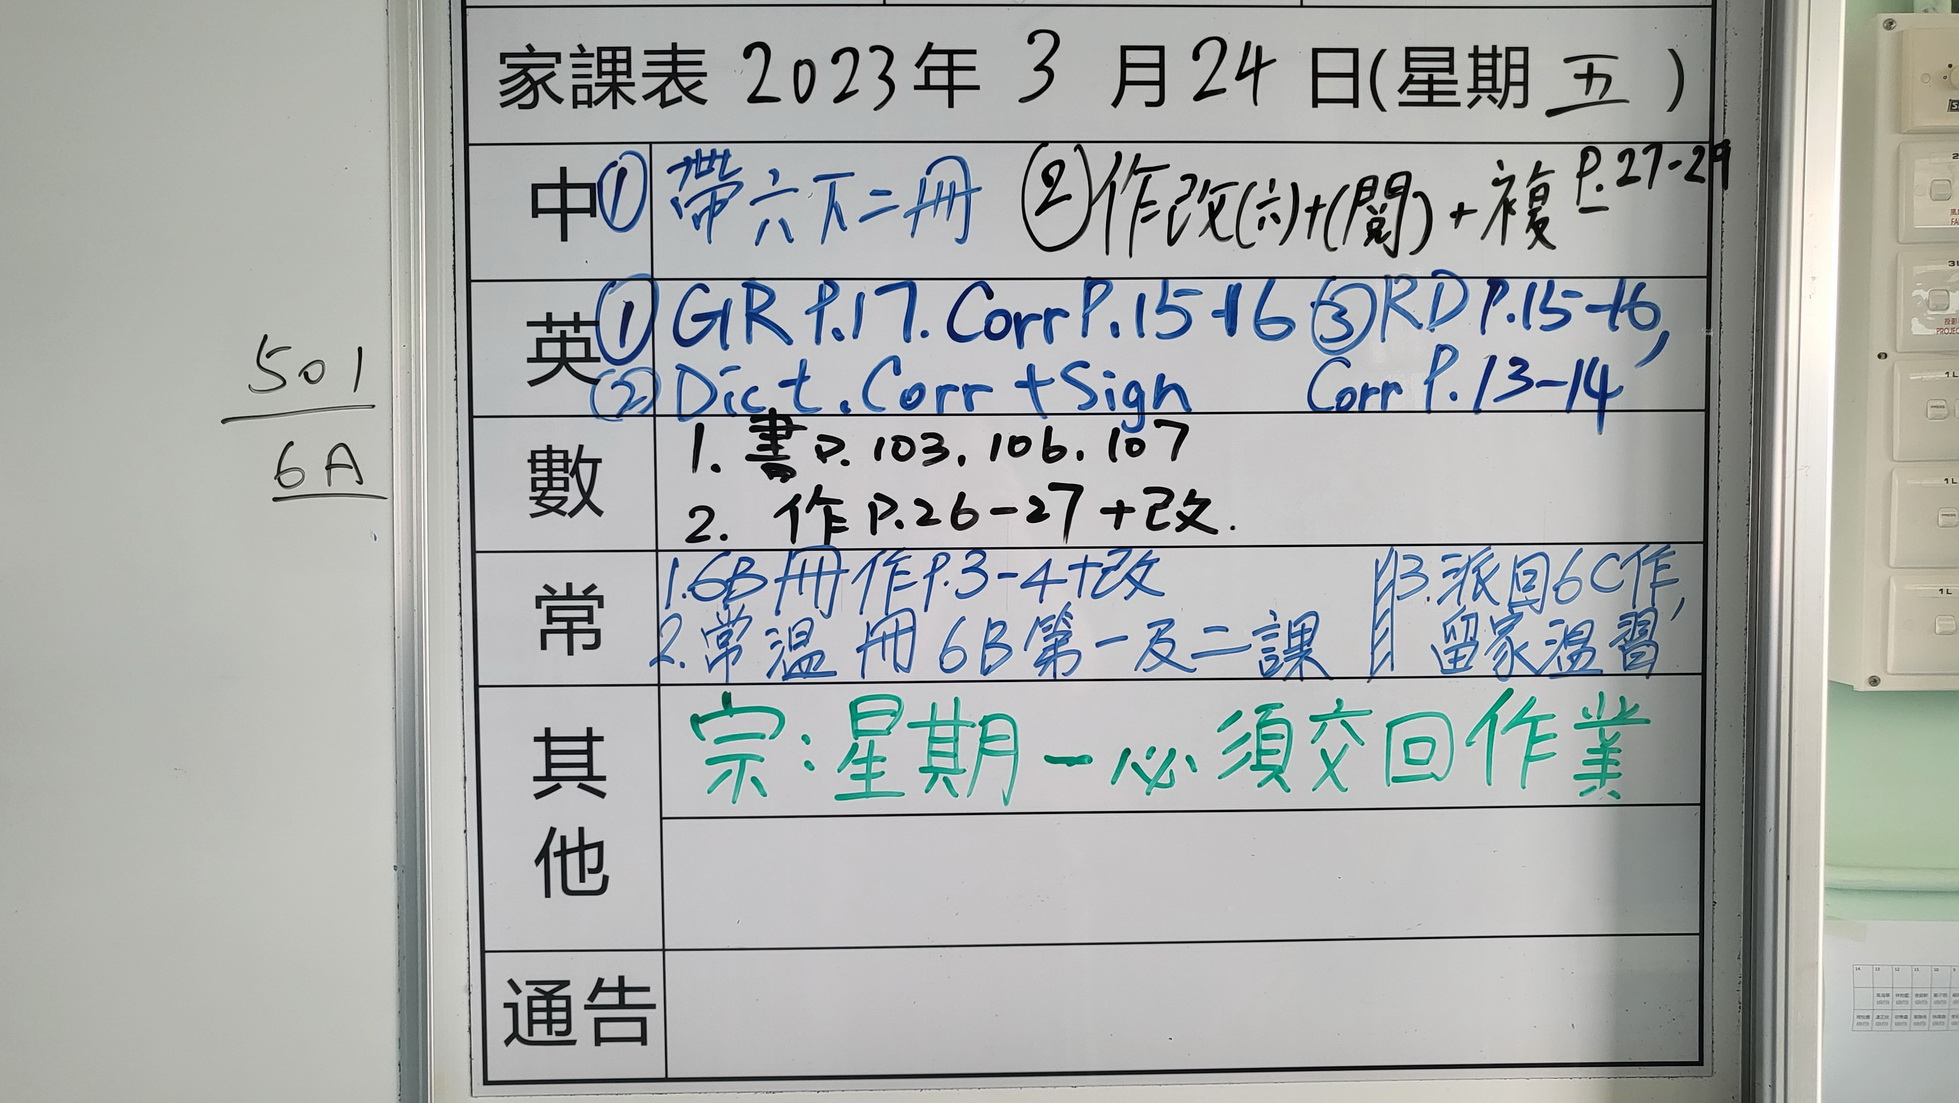 家課表 2023年 3 月 24 日(星期 五 )
中 ① 帶六下二冊 ② 作改(六)+(閱)+複 P.27-29
英 ① GR P.17. Corr P.15-16 ③ RD P.15-16,
② Dict. Corr + Sign Corr P.13-14
501
6A
數 1. 書P. 103. 106. 107
2. 作P.26-27+改.
常 1. 6B冊作P.3-4+改 3. 派回6C作,
2. 常溫冊6B第一及二課 留家溫習
其他 宗:星期一必須交回作業
通告